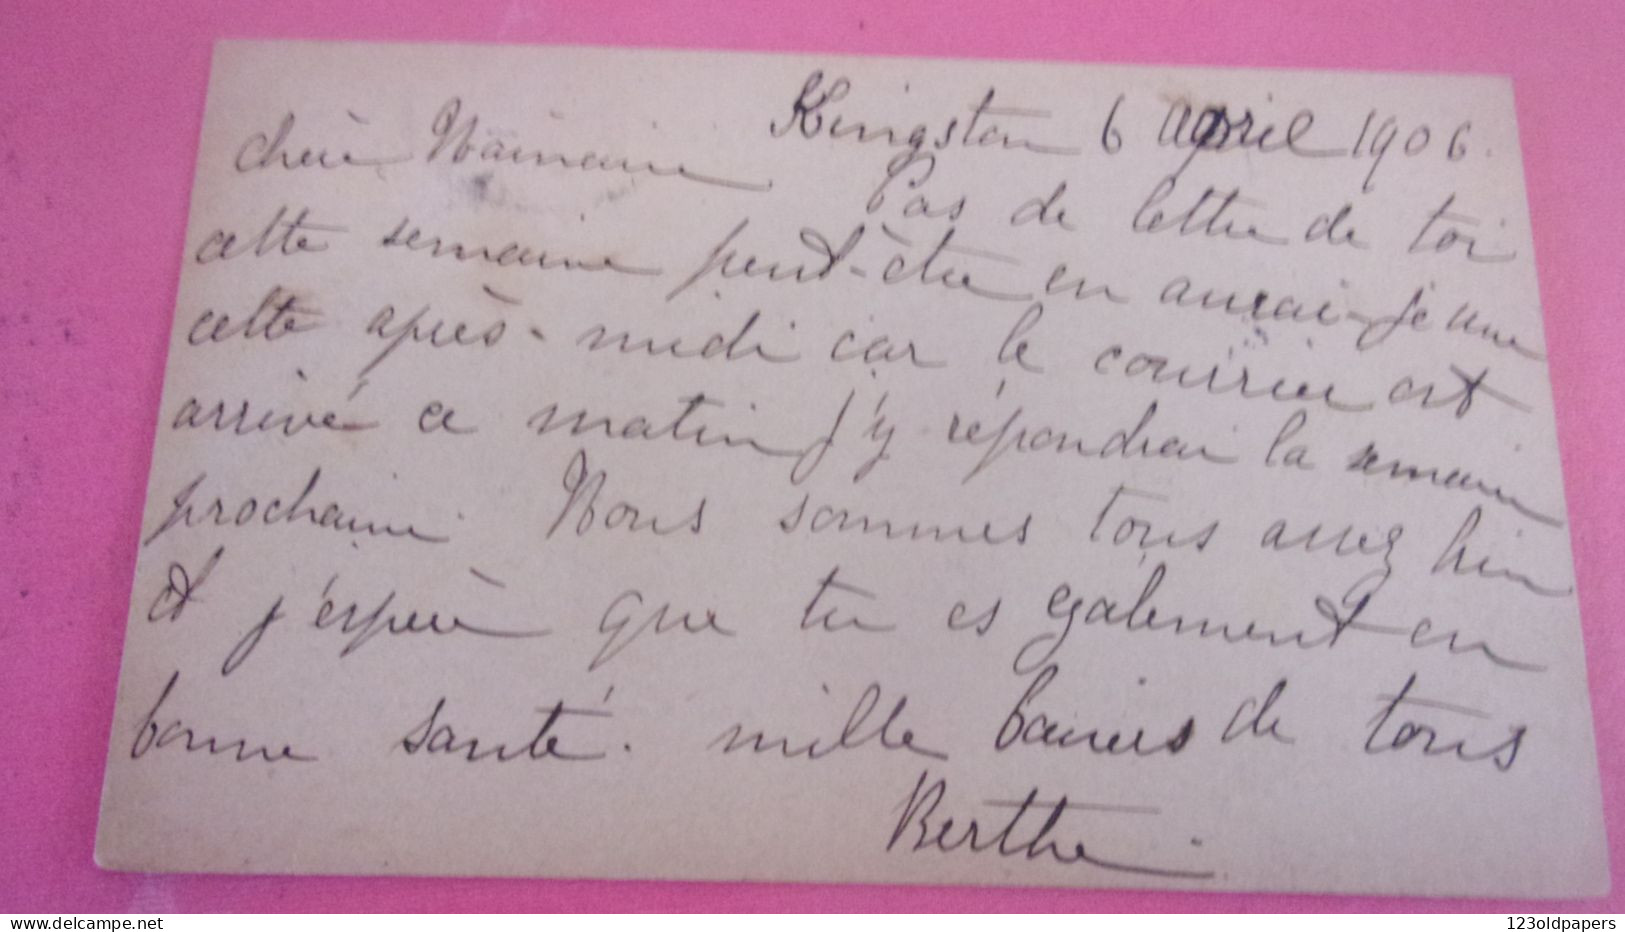 Kingston 6 april 1906.
chère Maimaine Pas de lettre de toi
cette semaine peut-être en aurai-je une
cette après-midi car le courrier est
arrivé ce matin j'y répondrai la semaine
prochaine. Nous sommes tous assez bien
et j'espère que tu es également en
bonne santé. mille baisers de tous
Berthe.
www.delcampe.net
123oldpapers